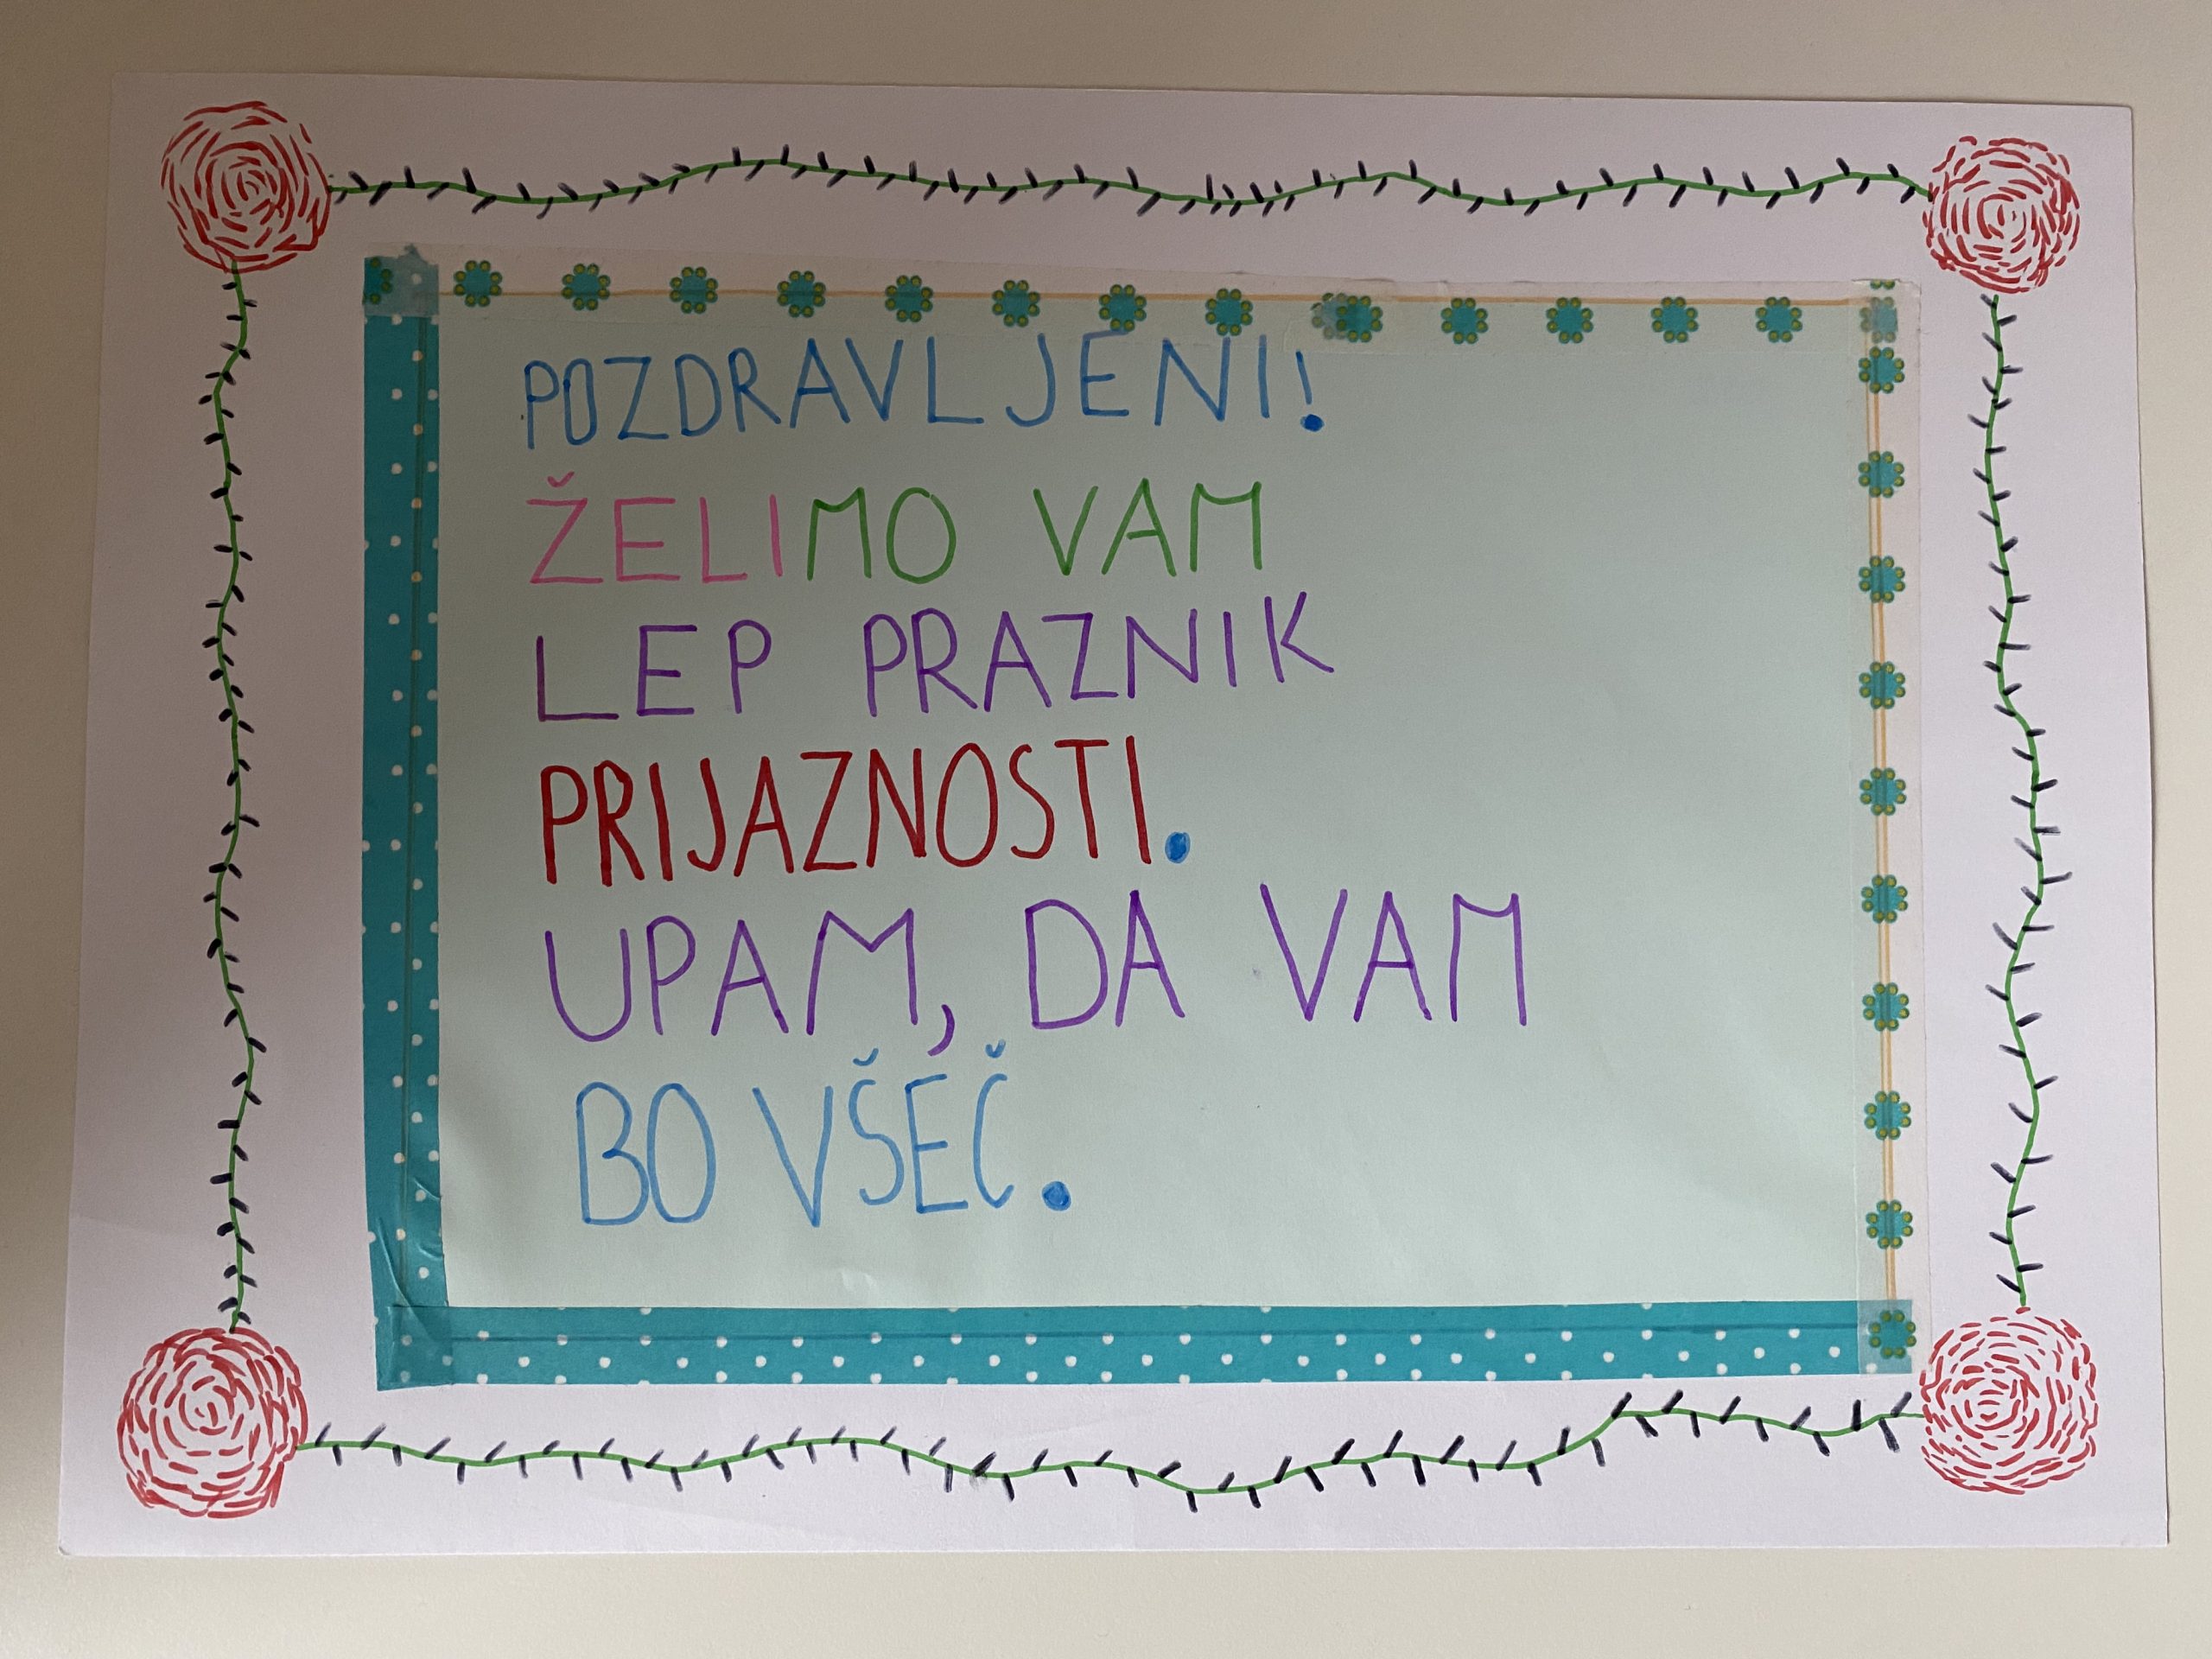 POZDRAVLJENI!
ŽELIMO VAM
LEP PRAZNIK
PRIJAZNOSTI.
UPAM, DA VAM
BO VŠEČ.